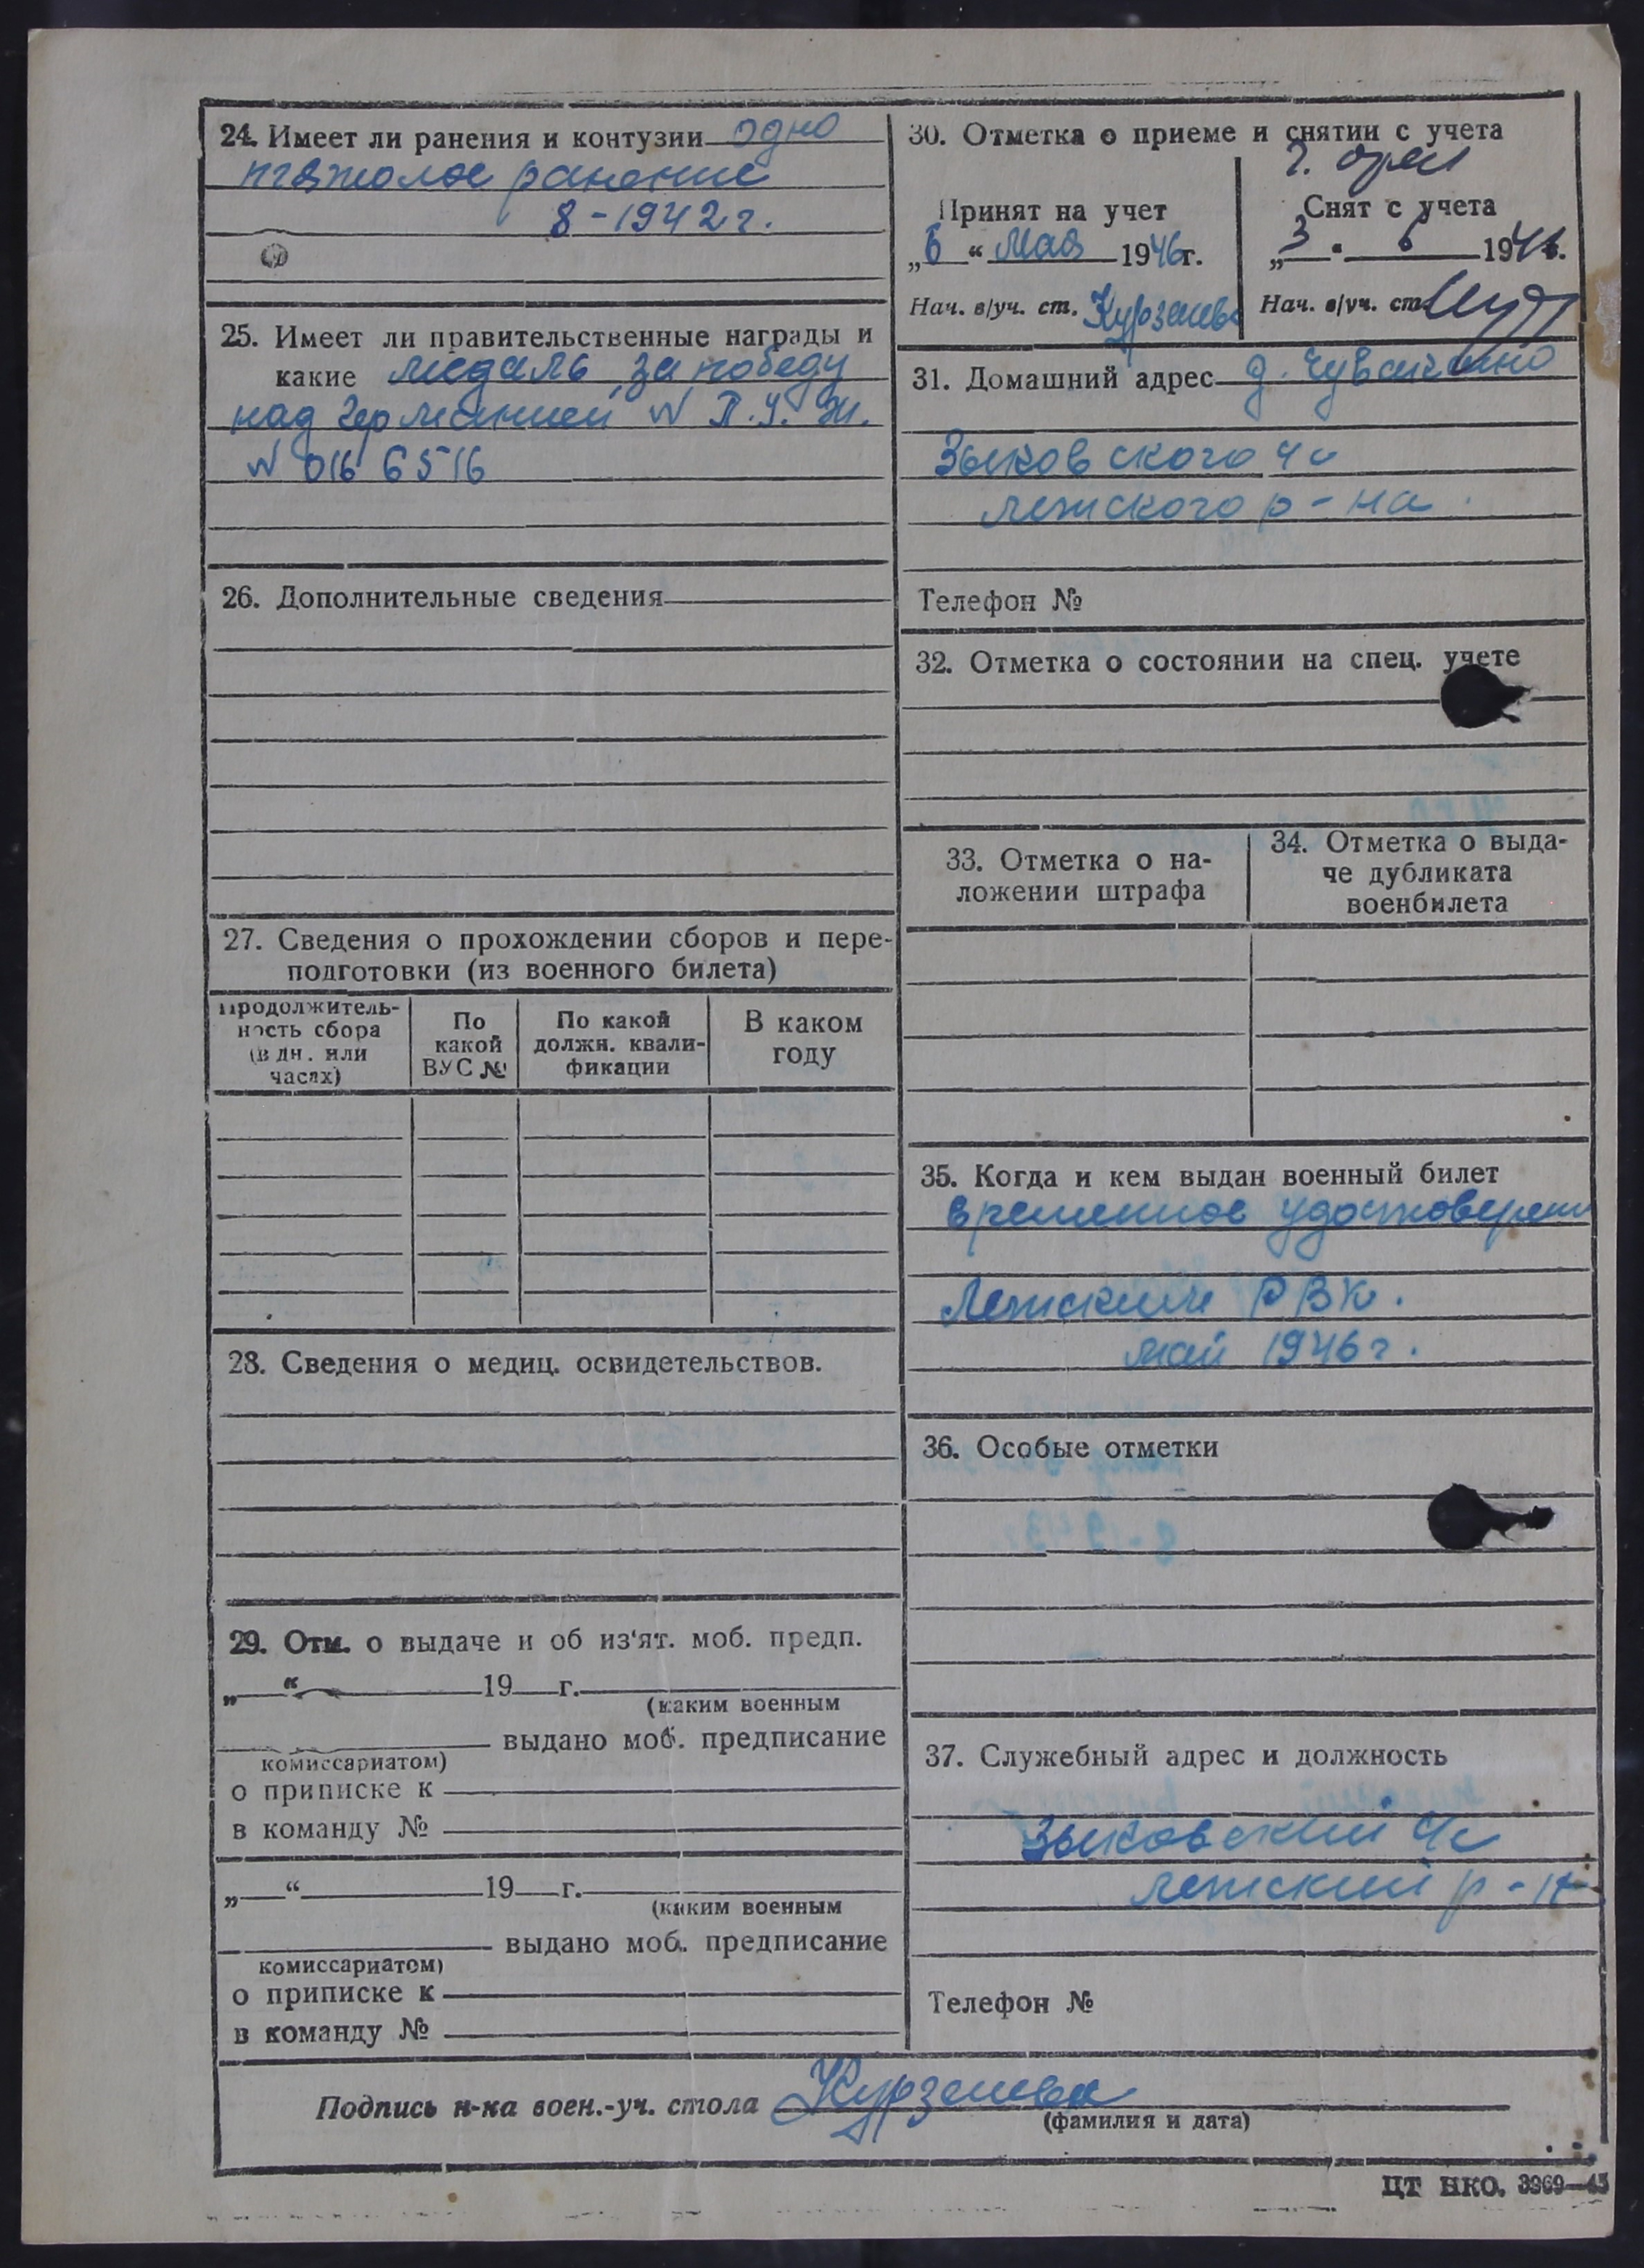 24. Имеет ли ранения и контузии одно
тяжолое ранение
8-1942 г.
25. Имеет ли правительственные награды и
какие медаль "за победу
над германией" № П.У. Зн.
№ 016 6516
26. Дополнительные сведения
27. Сведения о прохождении сборов и пере-
подготовки (из военного билета)
Продолжитель-
ность сбора
(в дн. или
часах)
По
какой
ВУС №
По какой
должн. квали-
фикации
В каком
году
28. Сведения о медиц. освидетельствов.
29. Отм. о выдаче и об из'ят. моб. предп.
„ “ 19 г.
(каким военным
выдано моб. предписание
комиссариатом)
о приписке к
в команду №
„ “ 19 г.
(каким военным
выдано моб. предписание
комиссариатом)
о приписке к
в команду №
30. Отметка о приеме и снятии с учета
Принят на учет
„6“ мая 1946г.
Нач. в/уч. ст.
г. орел
Снят с учета
„3“ 6 1946.
Нач. в/уч. ст.
31. Домашний адрес д.
Зыковского ч/с
лежского р-на.
Телефон №
32. Отметка о состоянии на спец. учете
33. Отметка о на-
ложении штрафа
34. Отметка о выда-
че дубликата
военбилета
35. Когда и кем выдан военный билет
временное удостоверени
Лежский РВК.
май 1946 г.
36. Особые отметки
37. Служебный адрес и должность
Зыковский ч/с
лежский р-н
Телефон №
Подпись н-ка воен.-уч. стола Курзенева
(фамилия и дата)
ЦТ НКО. 3969—45